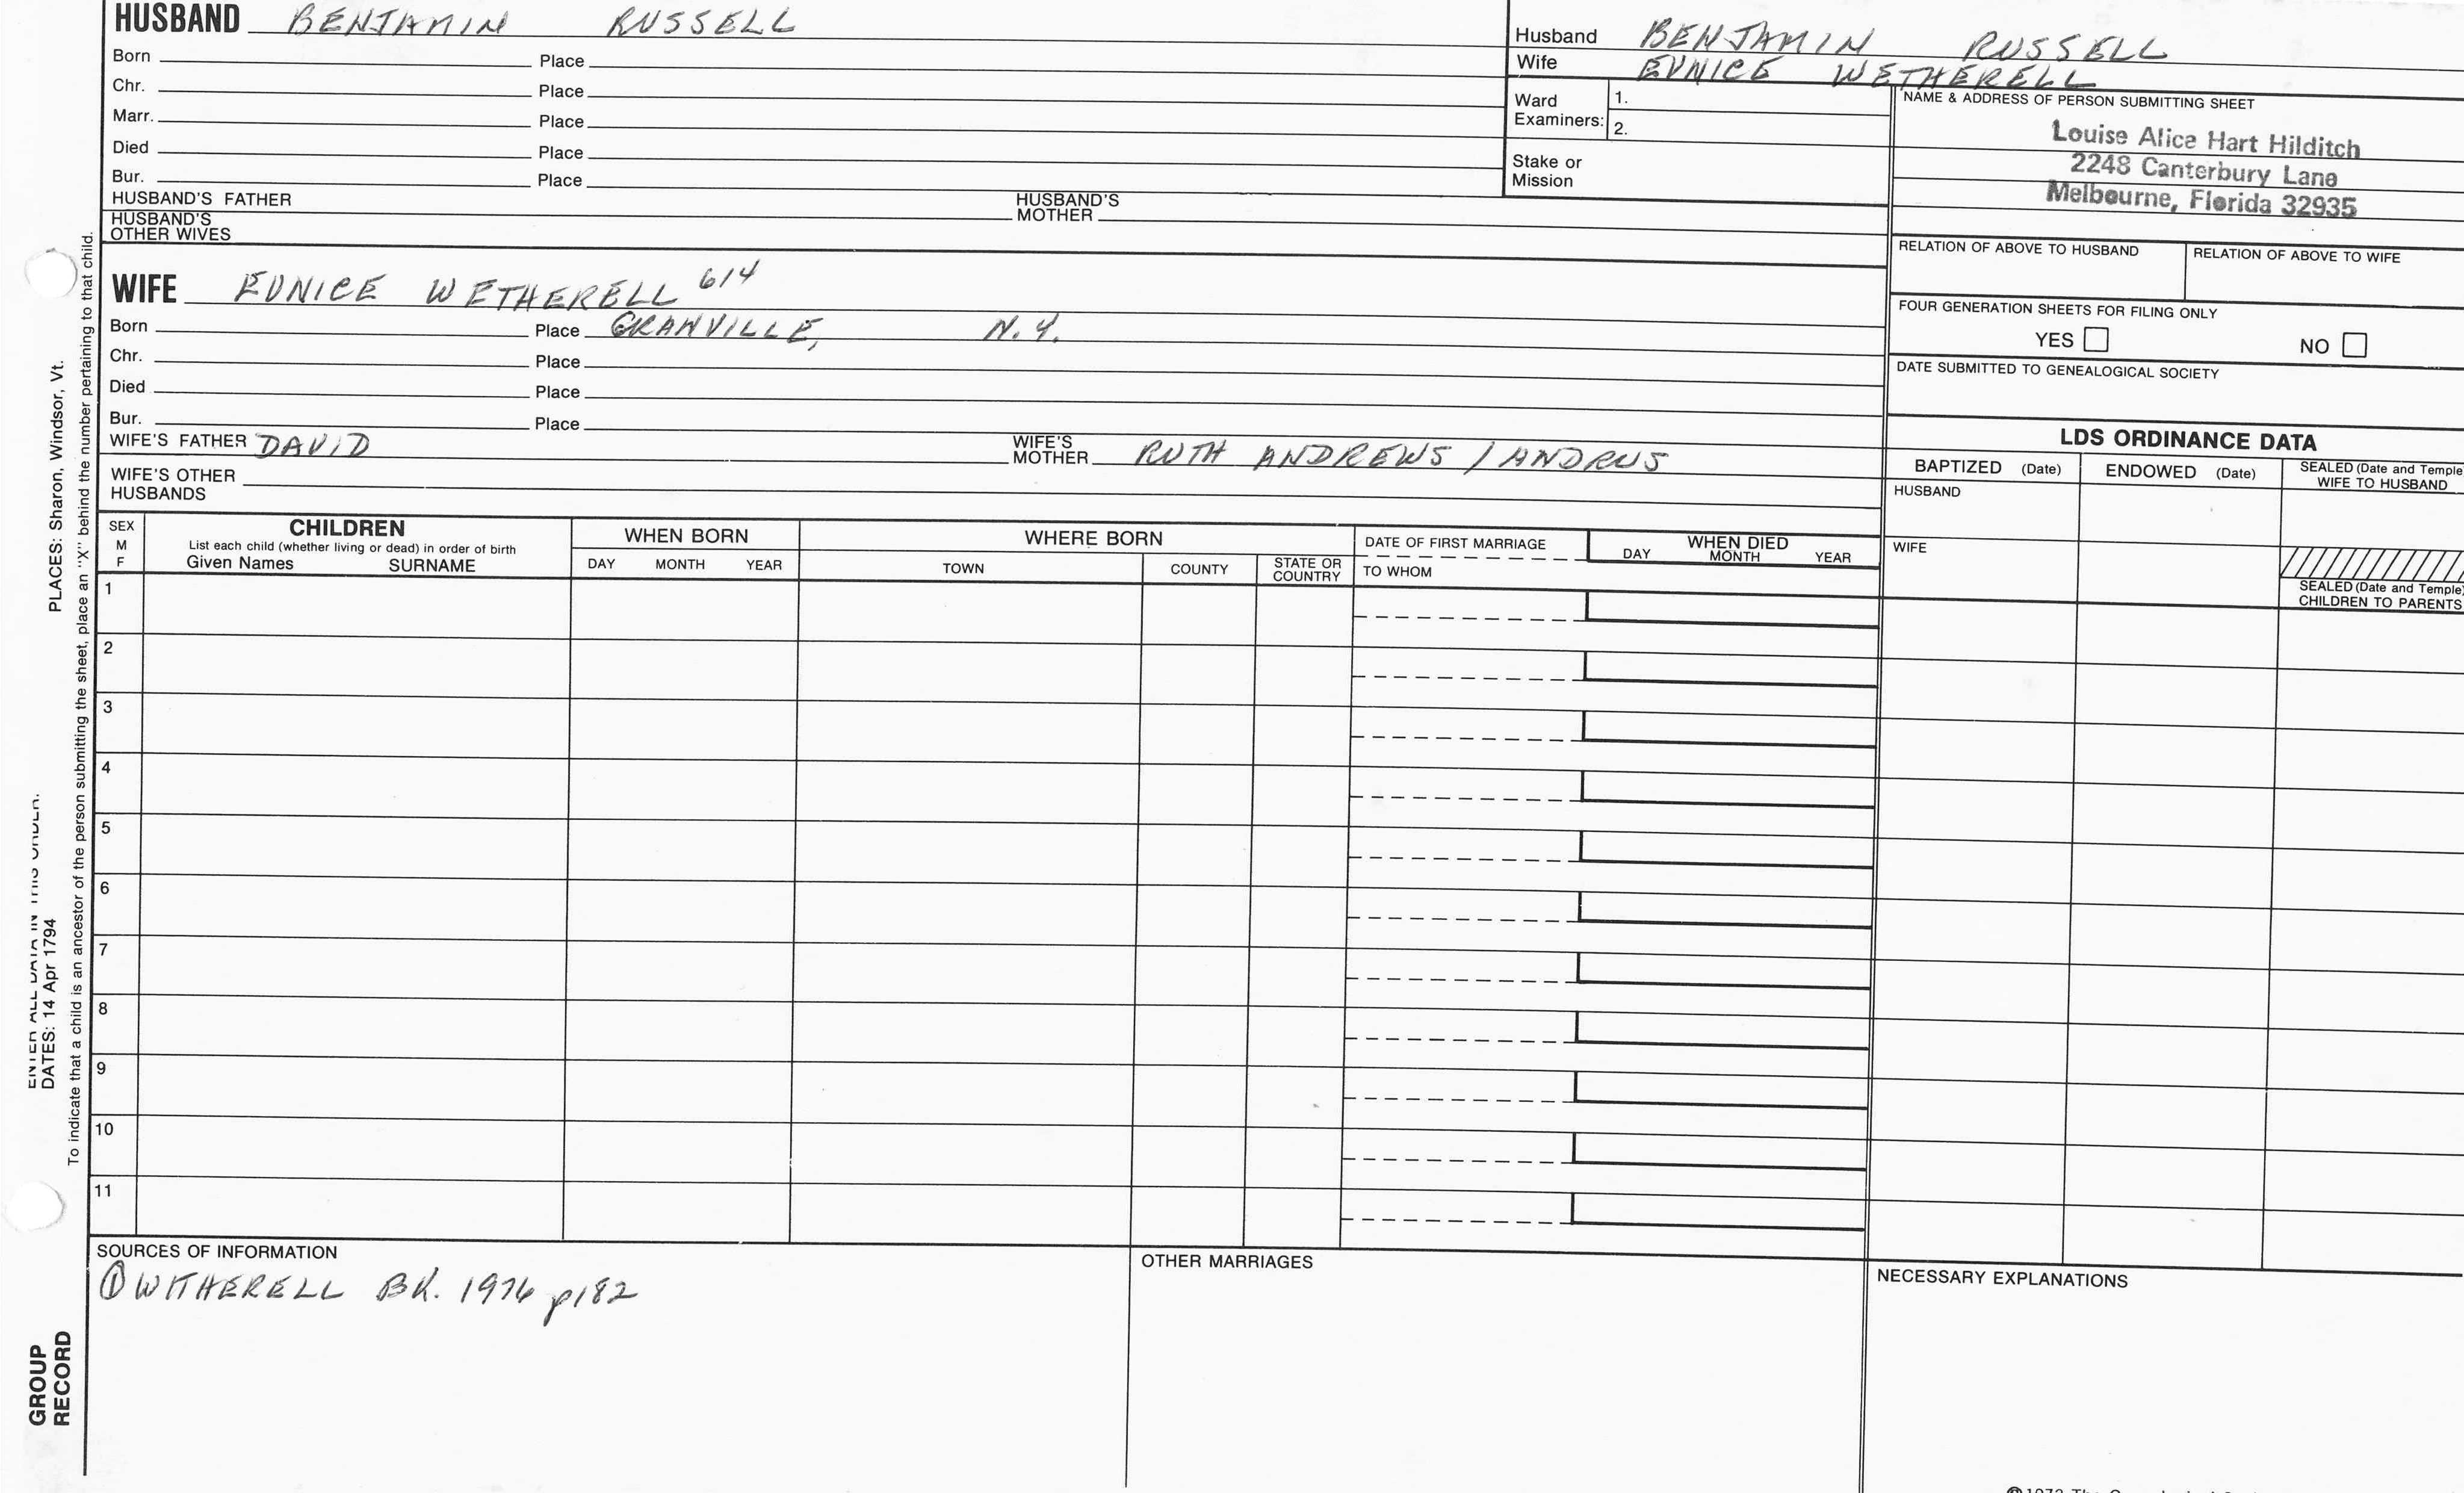 HUSBAND BENJAMIN RUSSELL
Born Place
Chr. Place
Marr. Place
Died Place
Bur. Place
HUSBAND'S FATHER HUSBAND'S MOTHER
HUSBAND'S OTHER WIVES
Husband BENJAMIN RUSSELL
Wife EUNICE WETHERELL
Ward Examiners: 1.
2.
Stake or Mission
NAME & ADDRESS OF PERSON SUBMITTING SHEET
Louise Alice Hart Hilditch
2248 Canterbury Lane
Melbourne, Florida 32935
RELATION OF ABOVE TO HUSBAND RELATION OF ABOVE TO WIFE
FOUR GENERATION SHEETS FOR FILING ONLY
YES NO
DATE SUBMITTED TO GENEALOGICAL SOCIETY
WIFE EUNICE WETHERELL 614
Born Place GRANVILLE, N.Y.
Chr. Place
Died Place
Bur. Place
WIFE'S FATHER DAVID WIFE'S MOTHER RUTH ANDREWS / ANDRUS
WIFE'S OTHER HUSBANDS
LDS ORDINANCE DATA
BAPTIZED (Date) ENDOWED (Date) SEALED (Date and Temple
WIFE TO HUSBAND
HUSBAND
WIFE
SEALED (Date and Temple)
CHILDREN TO PARENTS
SEX
M
F
CHILDREN
List each child (whether living or dead) in order of birth
Given Names SURNAME
WHEN BORN
DAY MONTH YEAR
WHERE BORN
TOWN COUNTY STATE OR COUNTRY
DATE OF FIRST MARRIAGE
TO WHOM
WHEN DIED
DAY MONTH YEAR
1
2
3
4
5
6
7
8
9
10
11
SOURCES OF INFORMATION
① WITHERELL BK. 1976 p182
OTHER MARRIAGES
NECESSARY EXPLANATIONS
PLACES: Sharon, Windsor, Vt.
ENTER ALL DATA IN THIS ORDER:
DATES: 14 Apr 1794
To indicate that a child is an ancestor of the person submitting the sheet, place an "X" behind the number pertaining to that child.
GROUP
RECORD